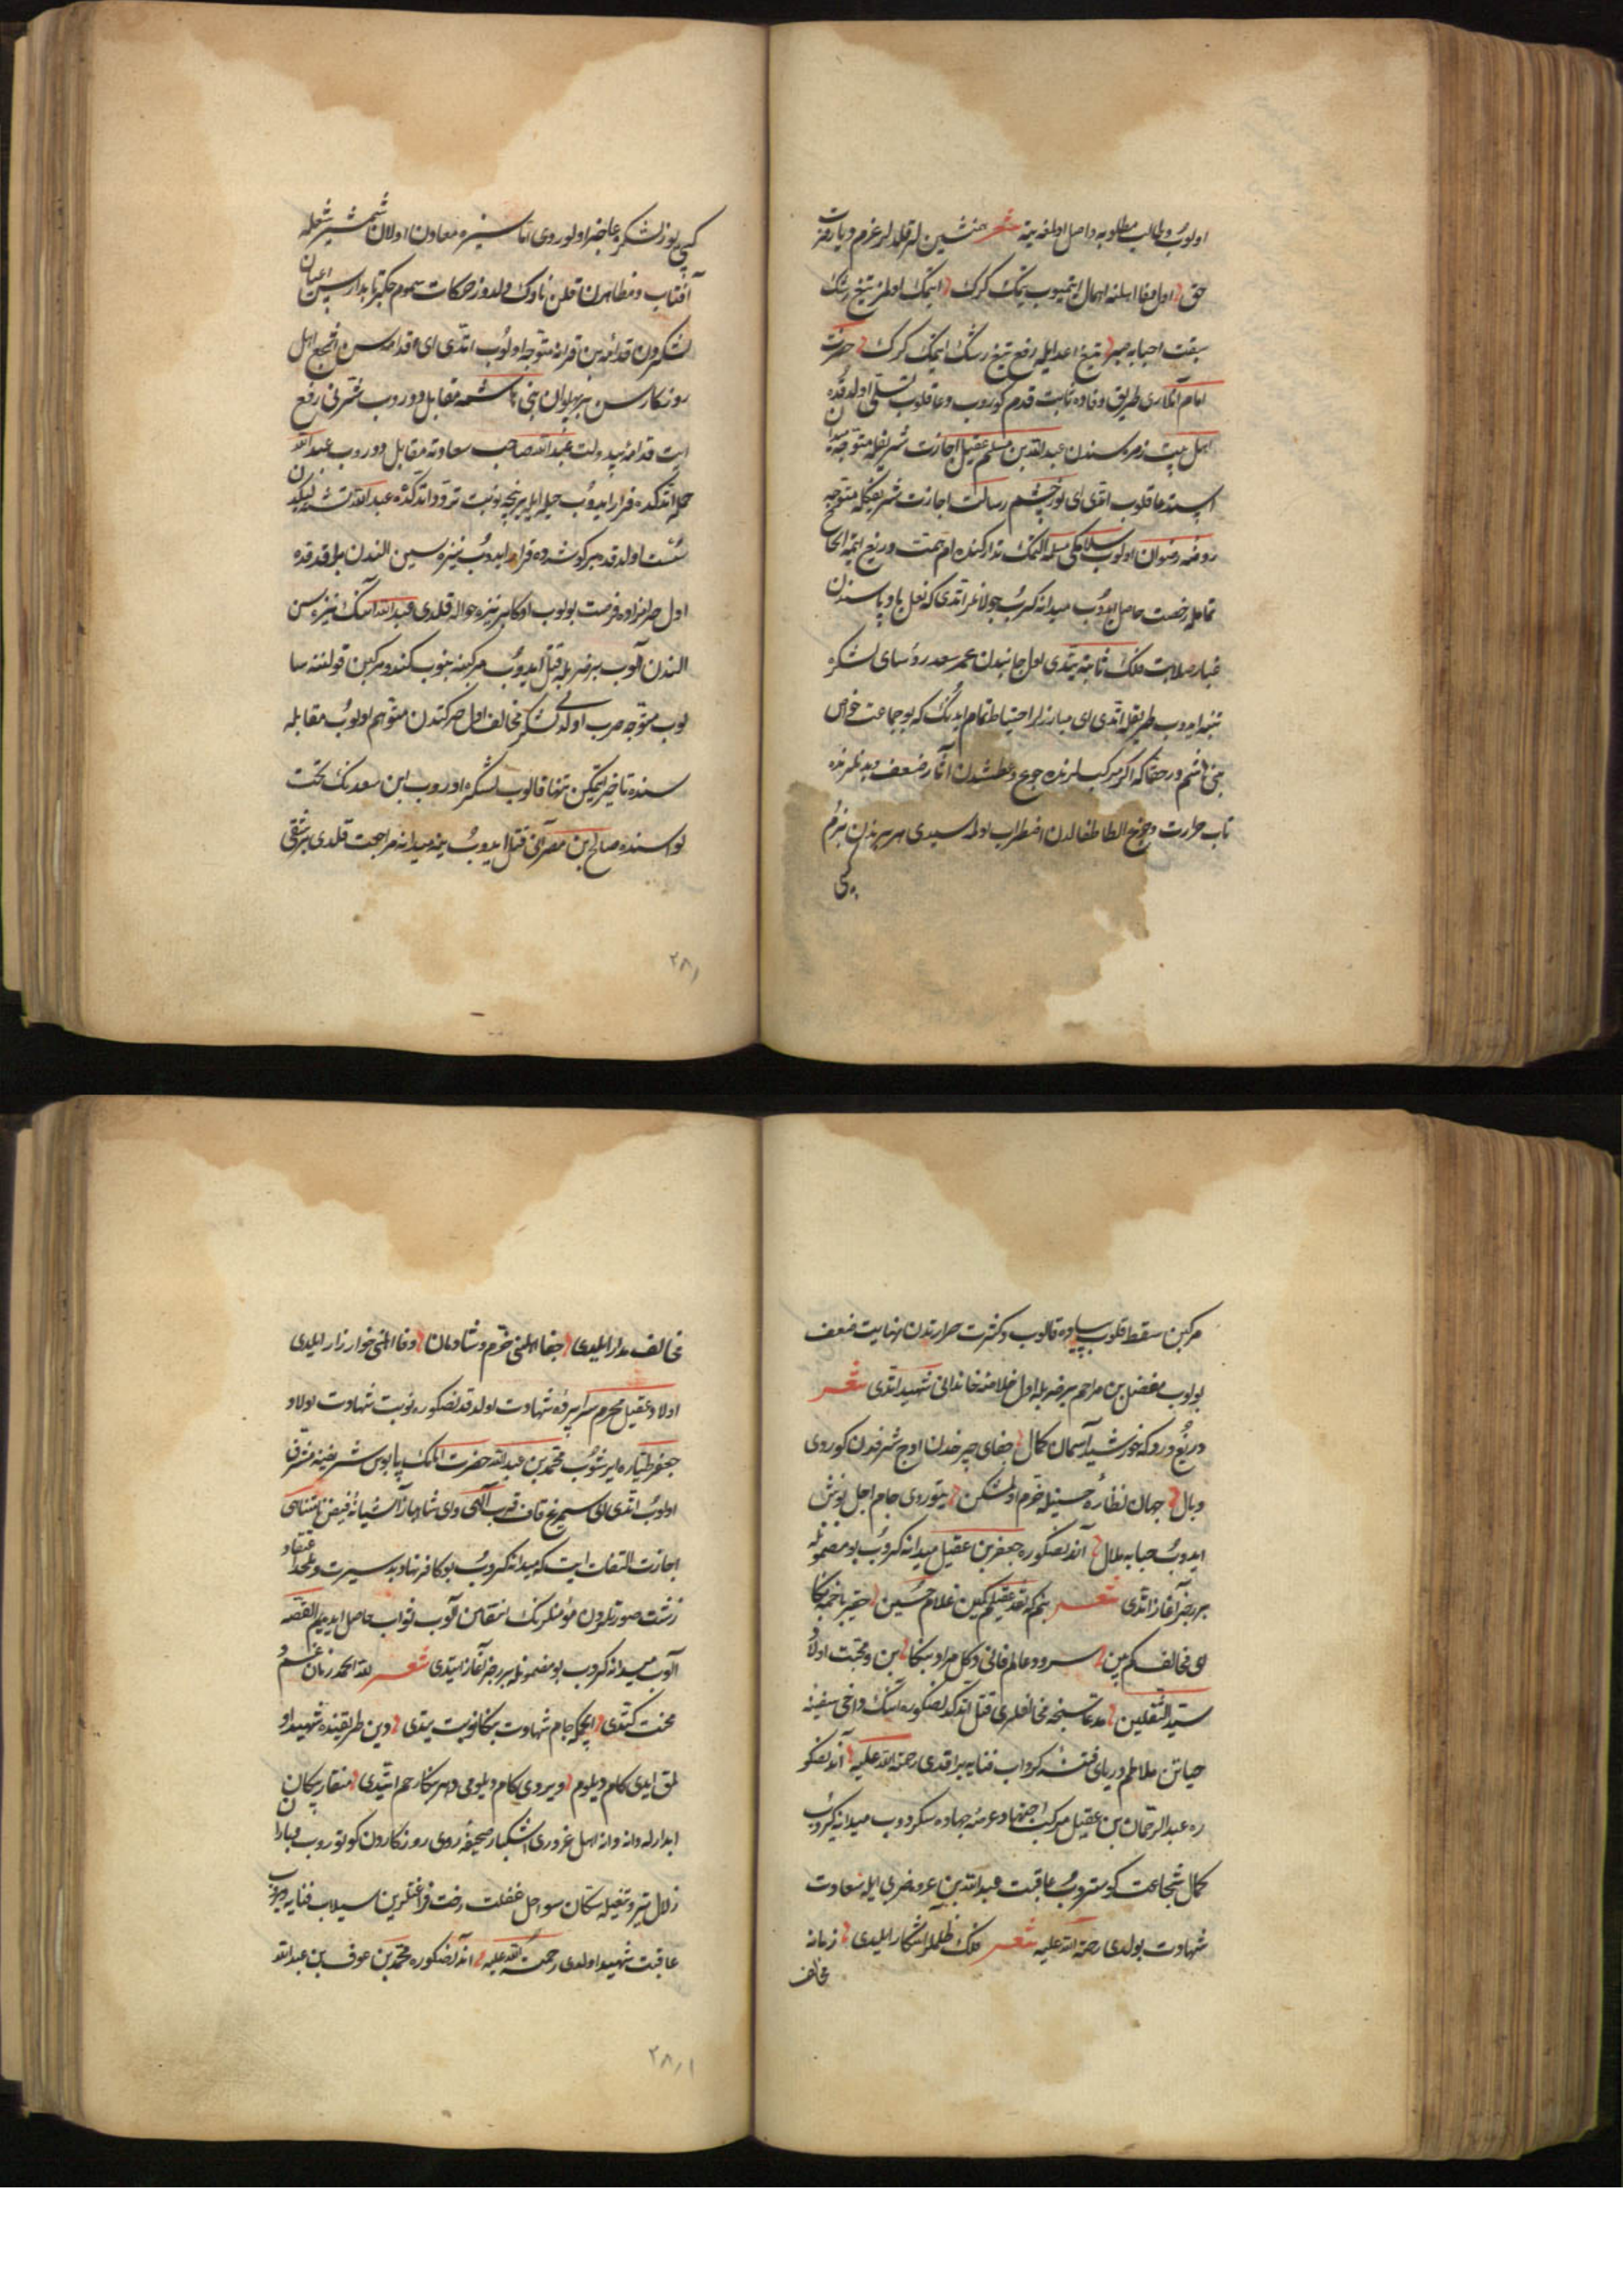 اولوب و طالب مطلوبه واصل اولمغه یته شعر همنشین لر قلدیلر عزم دیار
حق اول مقام اهلنه اهمال ایتمیوب یتمک کرک ایتمک اولمز تیغ رشک
سبقت احبابه صبر تیغ اعدایله رفع تیغ رشک ایتمک کرک حضرت
امام آنلاری طریق وفاده ثابت قدم کوروب دعا قلوب تسلی اولدقده
اهل بیت زمره سندن عبدالله بن مسلم عقیل اجازت شریفله متوجه میدان
ایسته عا قلوب اتدی ای نور چشم رسالت اجازت شریفکله متوجه
روضه رضوان اولوب سلامکی مسلمه التمک تدارکنده ام همت دریغ ایتمه الحاصل
تمامله رخصت حاصل ایدوب میدانه کروب جولانلر اتدی که نعل بادپاسندن
غبار صلابت فلک ثامنه یتدی اول جانبدن عمر سعد رؤسای لشکره
تنبه ایدوب طریقله اتدی ای مبارزلر احتیاط تمام ایدنک که بو جماعت خواص
بنی هاشم در حقا که اکر مرکب لرنده جوع و عطشدن آثار ضعف و بدنلرنده
تاب حرارت و جزع الطاطفالدن اضطراب اولمه سیدی هر بیریندن بزم
کبی
کبی یوز لشکر عاجز اولوردی اما ستیزه معاون اولان شمشیر شعله
آفتاب و مظاهرت قلن ناوک دلدوز حرکات سموم جکرتابدار سن اعیان
لشکردن قدامه بن قرانه متوجه اولوب اتدی ای قدامه سن اشجع اهل
روزکارسن بو پهلوان بنی هاشمه مقابل دوروب شرنی رفع
ایت قدامه بیدولت عبدالله صاحب سعادته مقابل دوروب عبدالله
حمله اتدکده فرار ایدوب حیله ایله بر نچه نوبت تردد اتدکده عبدالله تشنه لیکدن
سست اولدقده بر کوشه ده قرار ایدوب نیزه سین الندن براقدقده
اول حرامزاده فرصت بولوب اوکا بر نیزه حواله قلدی عبدالله انک نیزه سن
الندن آلوب بر ضربله قتل ایدوب مرکبنه بنوب کندو مرکبین قولننه سا
لوب متوجه حرب اولدی لشکر مخالف اول حرکتدن متوهم اولوب مقابله
سنده تاخیر ایتمکین تنها قالوب لشکره اوروب ابن سعدنک تحت
لواسنده صالح بن مضرانی قتل ایدوب ینه میدانه مراجعت قلدی بر شقی
۲۸۱
مرکبن سقط قلوب پیاده قالوب و کثرت حرارتدن نهایت ضعف
بولوب مفضل بن مزاحم بر ضربله اول خلاصه خاندانی شهید اتدی شعر
دریغ و درد که خورشید آسمان کمال جفای چرخدن اوج شرفدن کوردی
وبال جهان نظاره حسنیله خرم اولمشکن یتوردی جام اجل نوش
ایدوب حبابه ملال آندنصکوره جعفر بن عقیل میدانه کروب بو مضمونله
بر رجز آغاز اتدی شعر بنم که نقد عقیلم کمین غلام حسین حقیر باقمه بکا
ای مخالف کم بین سرود عالم فانی دکل مراد بکا بن و محبت اولاد
سید الثقلین مدعا سنجه مخالفلری قتل اتدکدنصکوره انک داخی سفینه
حیاتن تلاطم دریای فتنه کرداب فنایه براقدی رحمة الله علیه آندنصکو
ره عبد الرحمان بن عقیل مرکب اجتهاد عرصه جهاده سکردوب میدانه کیروب
کمال شجاعت کوستروب عاقبت عبدالله بن عروه ضربی ایله سعادت
شهادت بولدی رحمة الله علیه شعر فلک ظلملر آشکار ایلیدی زمانه
مخالف
مخالف مدار ایلیدی جفا اهلنی خرم و شادمان وفا اهلنی خوار زار ایلیدی
اولاد عقیل محرم سراپرده شهادت اولدقدنصکوره نوبت شهادت اولاد
جعفر طیاره ایرشوب محمد بن عبدالله حضرت امامک پابوس شریفنه مشرف
اولوب اتدی ای سیمرغ قاف قرب آلهی وای شاهباز آشیانه فیض نامتناهی
اجازت التفات ایت که میدانه کروب بو کافر نهاد بد سیرت و ملحد اعتقاد
زشت صورتلردن مؤمنلرنک انتقامن آلوب ثواب حاصل ایدیم القصه
آلوب میدانه کروب بو مضمونله بر رجز آغاز ایتدی شعر لله الحمد زمان غم و
محنت کتدی ایچکه جام شهادت بنکا نوبت یتدی دین طریقنده شهید او
لمق ایدی کام دلوم ویردی کام دلومی دهر بنکا رحم ایتدی منقار پیکان
ابدارله دانه دانه اهل غروری اشکبار صحیفه روی روزکاردن کوتوروب مبارا
زلال تیر و تیغیله سکان سواحل غفلت رخت فراغتلرین سیلاب فنایه ویروب
عاقبت شهید اولدی رحمة الله علیه آندنصکوره محمد بن عوف بن عبدالله
۲۸۱